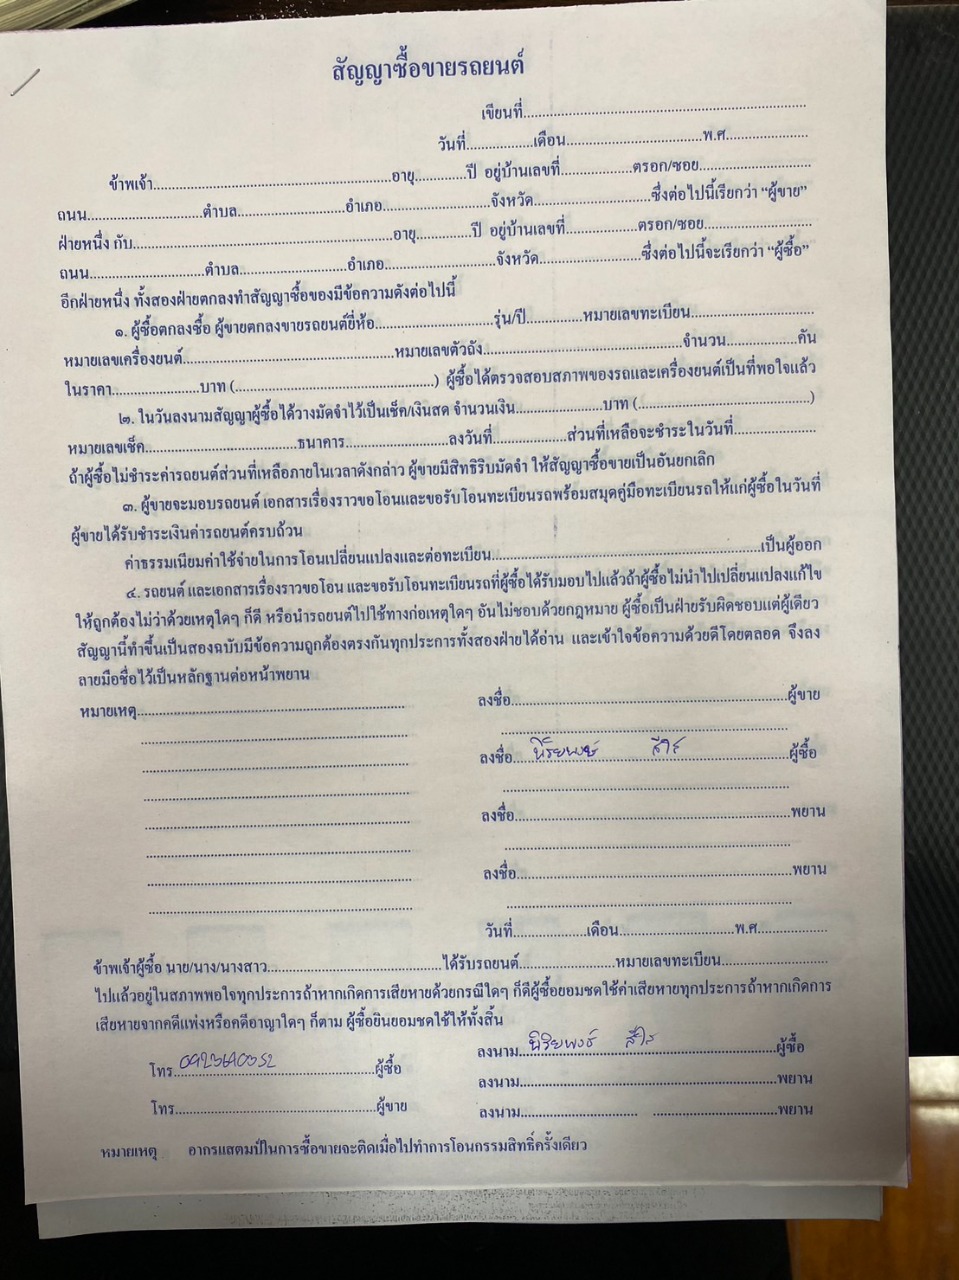 สัญญาซื้อขายรถยนต์
เขียนที่..........................................................................
วันที่..................เดือน....................................พ.ศ......................
ข้าพเจ้า..............................................................อายุ..............ปี อยู่บ้านเลขที่...................ตรอก/ซอย..............................
ถนน..............................ตำบล............................อำเภอ............................จังหวัด..............................ซึ่งต่อไปนี้เรียกว่า “ผู้ขาย”
ฝ่ายหนึ่ง กับ....................................................................อายุ...............ปี อยู่บ้านเลขที่...................ตรอก/ซอย.............................
ถนน..............................ตำบล............................อำเภอ.............................จังหวัด...........................ซึ่งต่อไปนี้จะเรียกว่า “ผู้ซื้อ”
อีกฝ่ายหนึ่ง ทั้งสองฝ่ายตกลงทำสัญญาซื้อของมีข้อความดังต่อไปนี้
๑. ผู้ซื้อตกลงซื้อ ผู้ขายตกลงขายรถยนต์ยี่ห้อ...............................รุ่น/ปี...............หมายเลขทะเบียน................................
หมายเลขเครื่องยนต์.......................................................หมายเลขตัวถัง....................................................จำนวน...................คัน
ในราคา.......................บาท (....................................................) ผู้ซื้อได้ตรวจสอบสภาพของรถและเครื่องยนต์เป็นที่พอใจแล้ว
๒. ในวันลงนามสัญญาผู้ซื้อได้วางมัดจำไว้เป็นเช็ค/เงินสด จำนวนเงิน.......................บาท (.............................................)
หมายเลขเช็ค........................................ธนาคาร...........................ลงวันที่...................ส่วนที่เหลือจะชำระในวันที่......................
ถ้าผู้ซื้อไม่ชำระค่ารถยนต์ส่วนที่เหลือภายในเวลาดังกล่าว ผู้ขายมีสิทธิริบมัดจำ ให้สัญญาซื้อขายเป็นอันยกเลิก
๓. ผู้ขายจะมอบรถยนต์ เอกสารเรื่องราวขอโอนและขอรับโอนทะเบียนรถพร้อมสมุดคู่มือทะเบียนรถให้แก่ผู้ซื้อในวันที่
ผู้ขายได้รับชำระเงินค่ารถยนต์ครบถ้วน
ค่าธรรมเนียมค่าใช้จ่ายในการโอนเปลี่ยนแปลงและต่อทะเบียน......................................................................เป็นผู้ออก
๔. รถยนต์ และเอกสารเรื่องราวขอโอน และขอรับโอนทะเบียนรถที่ผู้ซื้อได้รับมอบไปแล้วถ้าผู้ซื้อไม่นำไปเปลี่ยนแปลงแก้ไข
ให้ถูกต้องไม่ว่าด้วยเหตุใดๆ ก็ดี หรือนำรถยนต์ไปใช้ทางก่อเหตุใดๆ อันไม่ชอบด้วยกฎหมาย ผู้ซื้อเป็นฝ่ายรับผิดชอบแต่ผู้เดียว
สัญญานี้ทำขึ้นเป็นสองฉบับมีข้อความถูกต้องตรงกันทุกประการทั้งสองฝ่ายได้อ่าน และเข้าใจข้อความด้วยดีโดยตลอด จึงลง
ลายมือชื่อไว้เป็นหลักฐานต่อหน้าพยาน
หมายเหตุ......................................................................
ลงชื่อ........................................................................ผู้ขาย
ลงชื่อ........................................................................ผู้ซื้อ
ลงชื่อ........................................................................พยาน
ลงชื่อ........................................................................พยาน
วันที่...................เดือน..............................พ.ศ..................
ข้าพเจ้าผู้ซื้อ นาย/นาง/นางสาว.............................................ได้รับรถยนต์.........................หมายเลขทะเบียน............................
ไปแล้วอยู่ในสภาพพอใจทุกประการถ้าหากเกิดการเสียหายด้วยกรณีใดๆ ก็ดีผู้ซื้อยอมชดใช้ค่าเสียหายทุกประการถ้าหากเกิดการ
เสียหายจากคดีแพ่งหรือคดีอาญาใดๆ ก็ตาม ผู้ซื้อยินยอมชดใช้ให้ทั้งสิ้น
ลงนาม....................................................................ผู้ซื้อ
โทร....................................................ผู้ซื้อ
ลงนาม....................................................................พยาน
โทร....................................................ผู้ขาย
ลงนาม............................... .................................พยาน
หมายเหตุ อากรแสตมป์ในการซื้อขายจะติดเมื่อไปทำการโอนกรรมสิทธิ์ครั้งเดียว